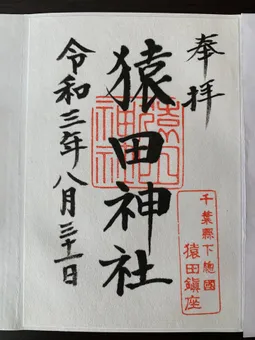 奉拝
猿田神社
令和三年八月三十一日
猿田神社
千葉縣下総國
猿田鎮座